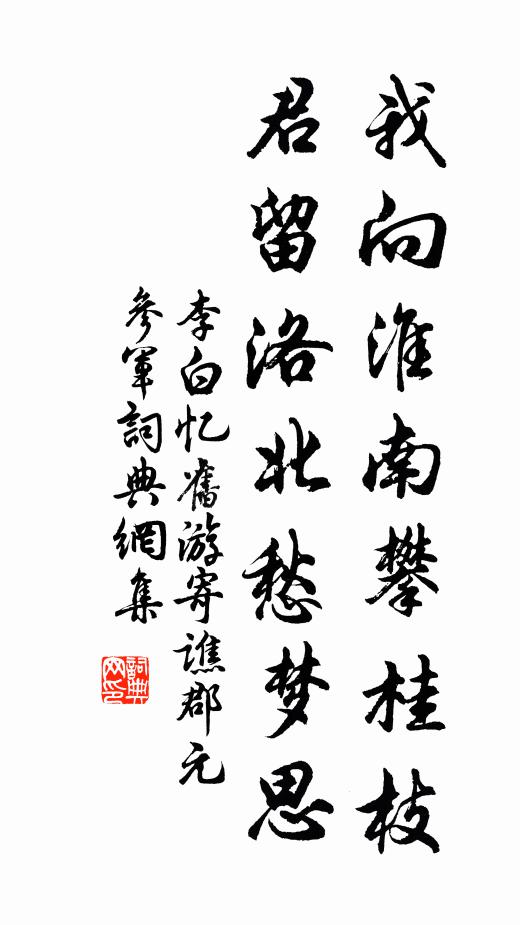 我向淮南攀桂枝
君留洛北愁梦思
李白忆舊游寄譙郡元
參軍詞典網集
詞典网印